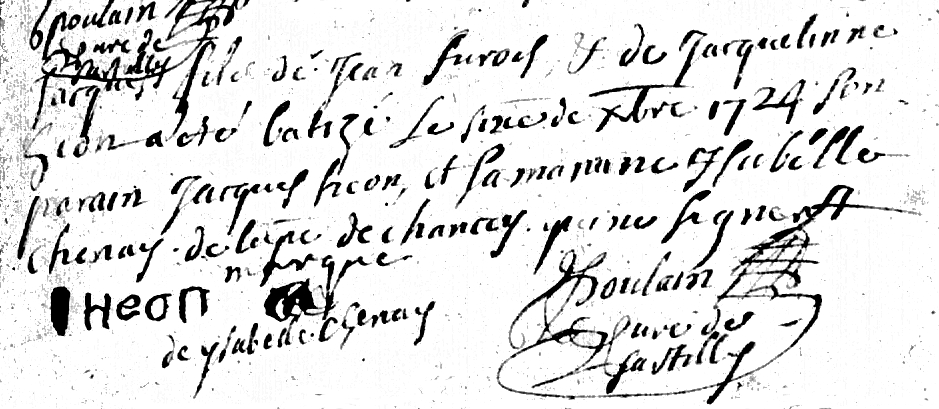 poulain
curé de
Sartilly
Jacques fils de Jean furoes & de Jacquelinne
heon a eté batizé Le sixe de xbre 1724 son
parain Jacques heon, et sa maraine ysabelle
chenay. de la pse de chancey. qui ne signe
marque
I HeON
de ysabelle chenay
Poulain
curé de
Sartilly